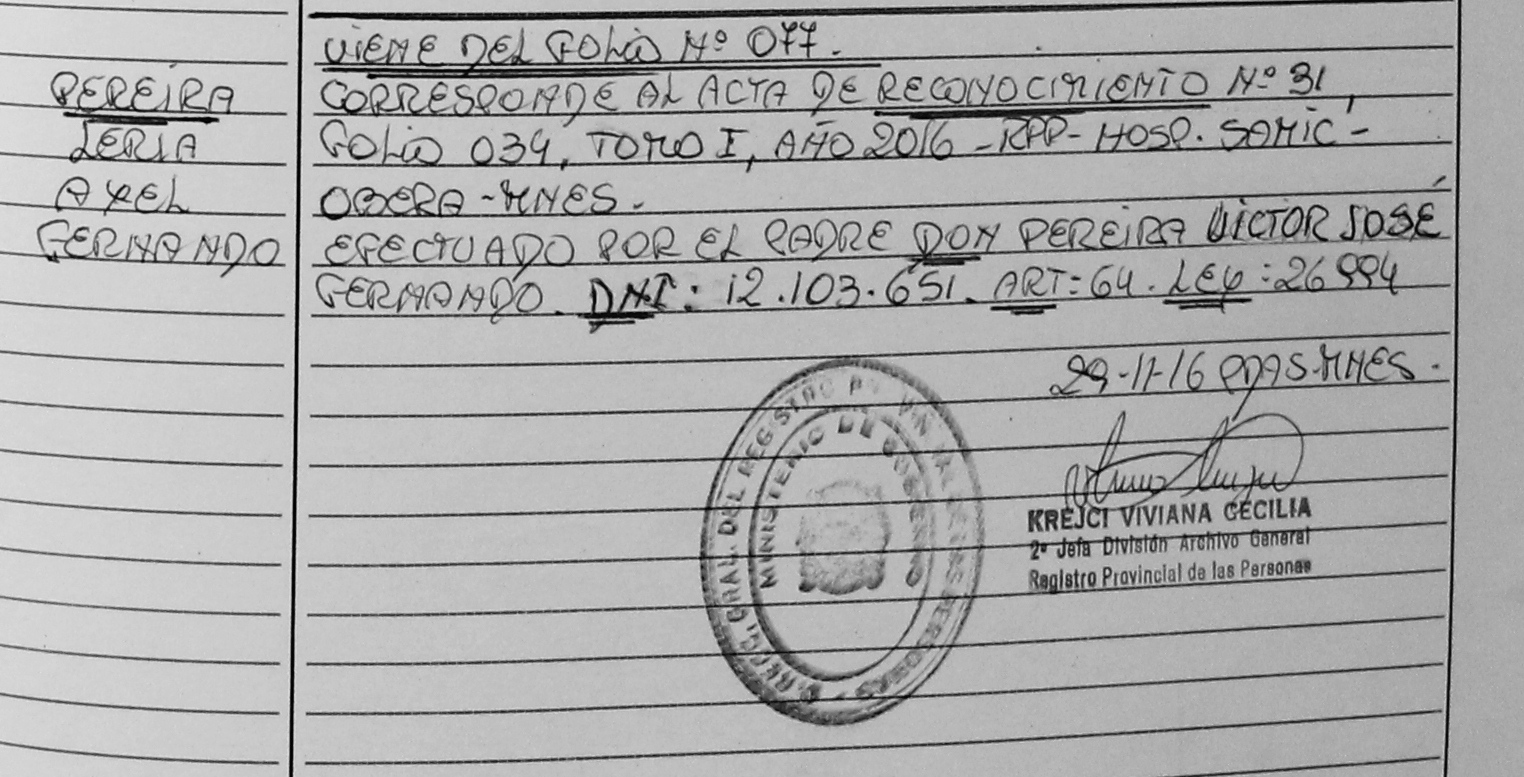 VIENE DEL FOLIO Nº 077.
PEREIRA
LERIA
AXEL
FERNANDO
CORRESPONDE AL ACTA DE RECONOCIMIENTO Nº 31,
FOLIO 034, TOMO I, AÑO 2016 - RPP - HOSP. SAMIC -
OBERA - MNES.
EFECTUADO POR EL PADRE DON PEREIRA VICTOR JOSÉ
FERNANDO. DNI: 12.103.651. ART: 64. LEY: 26994
29-11-16 PDAS-MNES.
KREJCI VIVIANA CECILIA
2º Jefa División Archivo General
Registro Provincial de las Personas
GRAL. DEL REGISTRO PERSONAS
MINISTERIO DE GOBIERNO